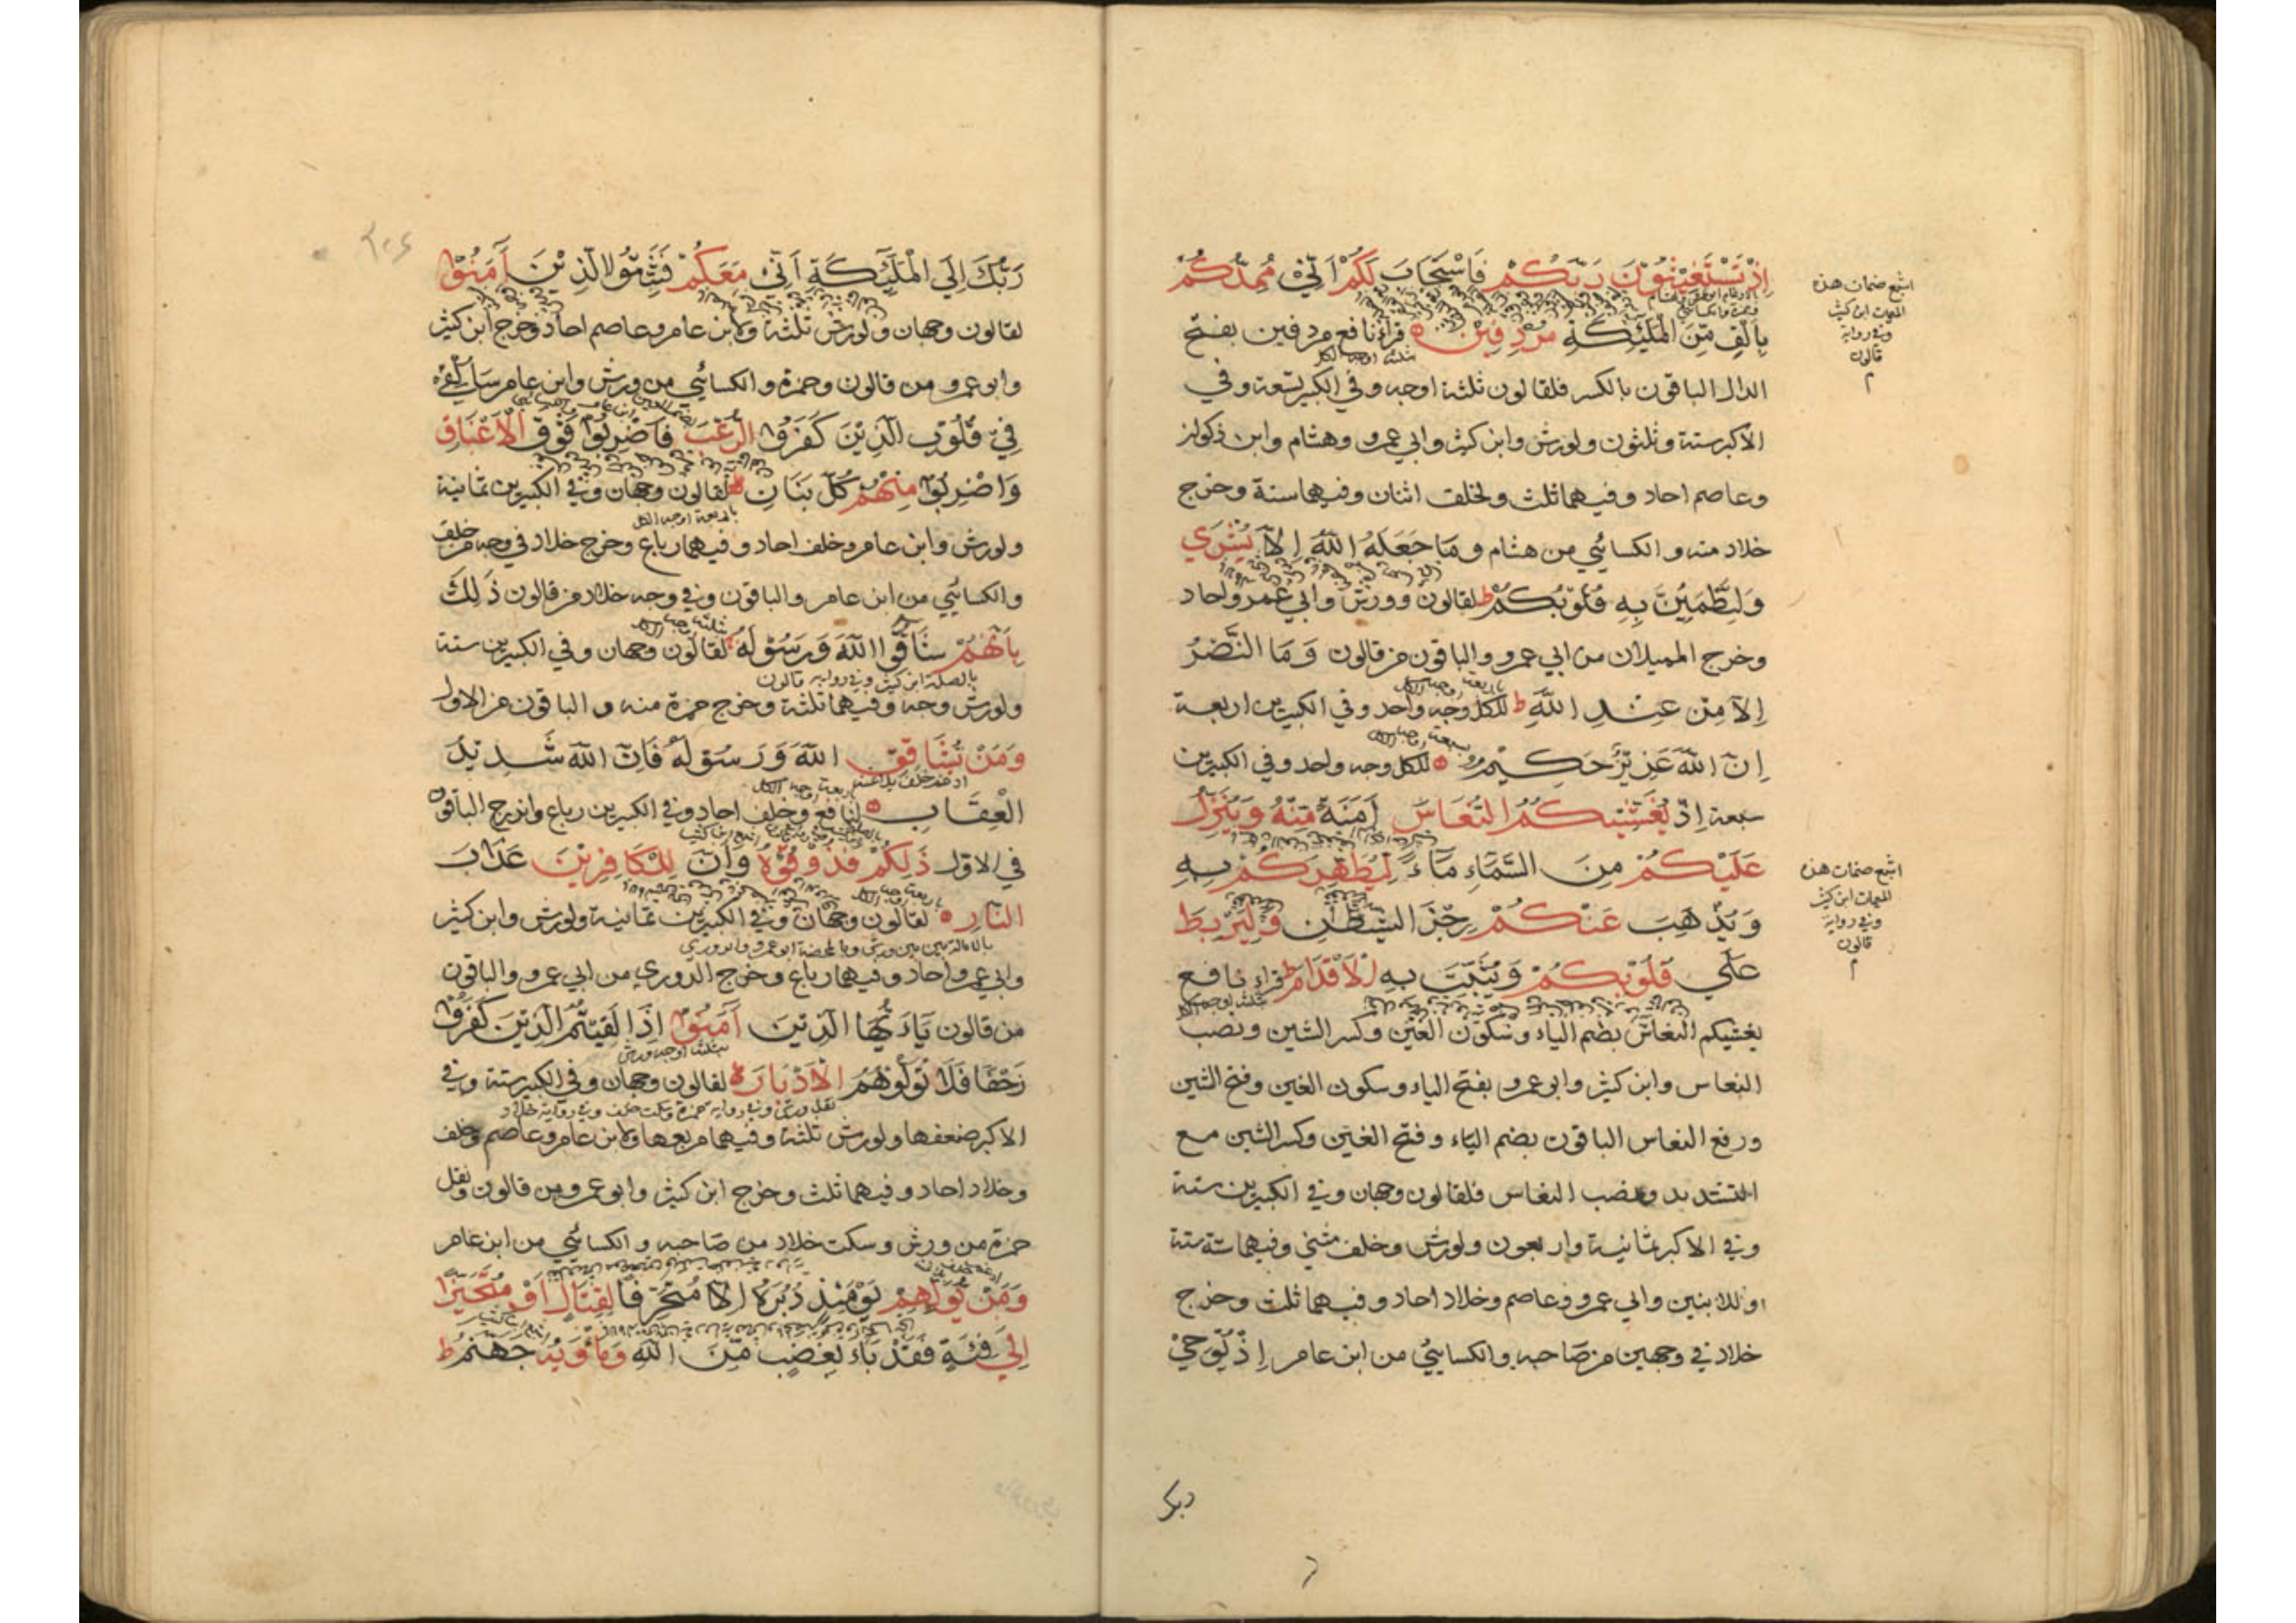 اِذْ تَسْتَغِيْثُوْنَ رَبَّكُمْ فَاسْتَجَابَ لَكُمْ اَنِّيْ مُمِدُّكُمْ
بِاَلْفٍ مِّنَ الْمَلٰٓئِكَةِ مُرْدِفِيْنَ قراء نافع مردفين بفتح
ثلثة اوجه الكل
الدال الباقون بالكسر فلقالون ثلثة اوجه وفي الكبير تسعة وفي
الاكبر ستة وثلثون ولورش وابن كثير وابي عمرو وهشام وابن ذكوان
وعاصم احاد وفيهما ثلث ولخلف اثنان وفيهما ستة وخرج
خلاد منه والكسائي من هشام وَمَا جَعَلَهُ اللّٰهُ اِلَّا بُشْرٰي
وَلِتَطْمَئِنَّ بِهِ قُلُوْبُكُمْ ط لقالون وورش وابي عمرو احاد
وخرج المميلان من ابي عمرو والباقون من قالون وَمَا النَّصْرُ
باربعة اوجه الكل
اِلَّا مِنْ عِنْدِ اللّٰهِ ط للكل وجه واحد وفي الكبيرين اربعة
بسبعة اوجه الكل
اِنَّ اللّٰهَ عَزِيْزٌ حَكِيْمٌ للكل وجه واحد وفي الكبيرين
سبعة اِذْ يُغْشِيْكُمُ النُّعَاسَ اَمَنَةً مِّنْهُ وَيُنَزِّلُ
عَلَيْكُمْ مِنَ السَّمَاءِ مَآءً لِيُطَهِّرَكُمْ بِهِ
وَيُذْهِبَ عَنْكُمْ رِجْزَ الشَّيْطَانِ وَلِيَرْبِطَ
عَلٰي قُلُوْبِكُمْ وَيُثَبِّتَ بِهِ الْاَقْدَامَ ط قراء نافع
بثلثة اوجه الكل
يغشيكم النعاس بضم الياء وسكون الغين وكسر الشين ونصب
النعاس وابن كثير وابو عمرو بفتح الياء وسكون الغين وفتح الشين
ورفع النعاس الباقون بضم الياء وفتح الغين وكسر الشين مع
التشديد ونصب النعاس فلقالون وجهان وفي الكبيرين ستة
وفي الاكبر ثمانية واربعون ولورش وخلف مثني وفيهما ستة ستة
وللابنين وابي عمرو وعاصم وخلاد احاد وفيهما ثلث وخرج
خلاد في وجهين من صاحبه والكسائي من ابن عامر اِذْ يُوْحِيْ
ربك
اشبع ضمات هذه
الميمات ابن كثير
وفي رواية
قالون
م
اشبع ضمات هذه
الميمات ابن كثير
وفي رواية
قالون
م
رَبُّكَ اِلَي الْمَلٰٓئِكَةِ اَنِّيْ مَعَكُمْ فَثَبِّتُوا الَّذِيْنَ اٰمَنُوْا
لقالون وجهان ولورش ثلثة ولابن عامر وعاصم احاد وخرج ابن كثير
وابو عمرو من قالون وحمزة والكسائي من ورش وابن عامر سَاُلْقِيْ
فِيْ قُلُوْبِ الَّذِيْنَ كَفَرُوا الرُّعْبَ فَاضْرِبُوْا فَوْقَ الْاَعْنَاقِ
وَاضْرِبُوْا مِنْهُمْ كُلَّ بَنَانٍ لقالون وجهان وفي الكبيرين ثمانية
باربعة اوجه الكل
ولورش وابن عامر وخلف احاد وفيهما رباع وخرج خلاد في وجه من خلف
والكسائي من ابن عامر والباقون وفي وجه خلاد من قالون ذٰلِكَ
بثلثة اوجه الكل
بِاَنَّهُمْ شَاقُّوا اللّٰهَ وَرَسُوْلَهُ لقالون وجهان وفي الكبيرين ستة
بالصلة ابن كثير وفي رواية قالون
ولورش وجه وفيهما ثلثة وخرج حمزة منه والباقون من الاول
وَمَنْ يُّشَاقِقِ اللّٰهَ وَرَسُوْلَهُ فَاِنَّ اللّٰهَ شَدِيْدُ
ادغم خلف بلا غنة
باربعة اوجه الكل
الْعِقَابِ لنافع وخلف احاد وفي الكبيرين رباع واندرج الباقون
في الاول ذٰلِكُمْ فَذُوْقُوْهُ وَاَنَّ لِلْكَافِرِيْنَ عَذَابَ
باربعة اوجه الكل
النَّارِ لقالون وجهان وفي الكبيرين ثمانية ولورش وابن كثير
بالامالة بين بين ورش وبالمحضة ابو عمرو والدوري
وابي عمرو احاد وفيهما رباع وخرج الدوري من ابي عمرو والباقون
من قالون يَاَيُّهَا الَّذِيْنَ اٰمَنُوْا اِذَا لَقِيْتُمُ الَّذِيْنَ كَفَرُوْا
بثلثة اوجه ورش
زَحْفًا فَلَا تُوَلُّوْهُمُ الْاَدْبَارَ لقالون وجهان وفي الكبير ستة وفي
نقل ورش وفي رواية حمزة وسكت خلف وفي رواية خلاد
الاكبر ضعفها ولورش ثلثة وفيهما مربعها ولابن عامر وعاصم وخلف
وخلاد احاد وفيهما ثلث وخرج ابن كثير وابو عمرو من قالون ونقل
حمزة من ورش وسكت خلاد من صاحبه والكسائي من ابن عامر
وَمَنْ يُّوَلِّهِمْ يَوْمَئِذٍ دُبُرَهُ اِلَّا مُتَحَرِّفًا لِقِتَالٍ اَوْ مُتَحَيِّزًا
اِلٰي فِئَةٍ فَقَدْ بَاءَ بِغَضَبٍ مِّنَ اللّٰهِ وَمَاْوٰيهُ جَهَنَّمُ ط